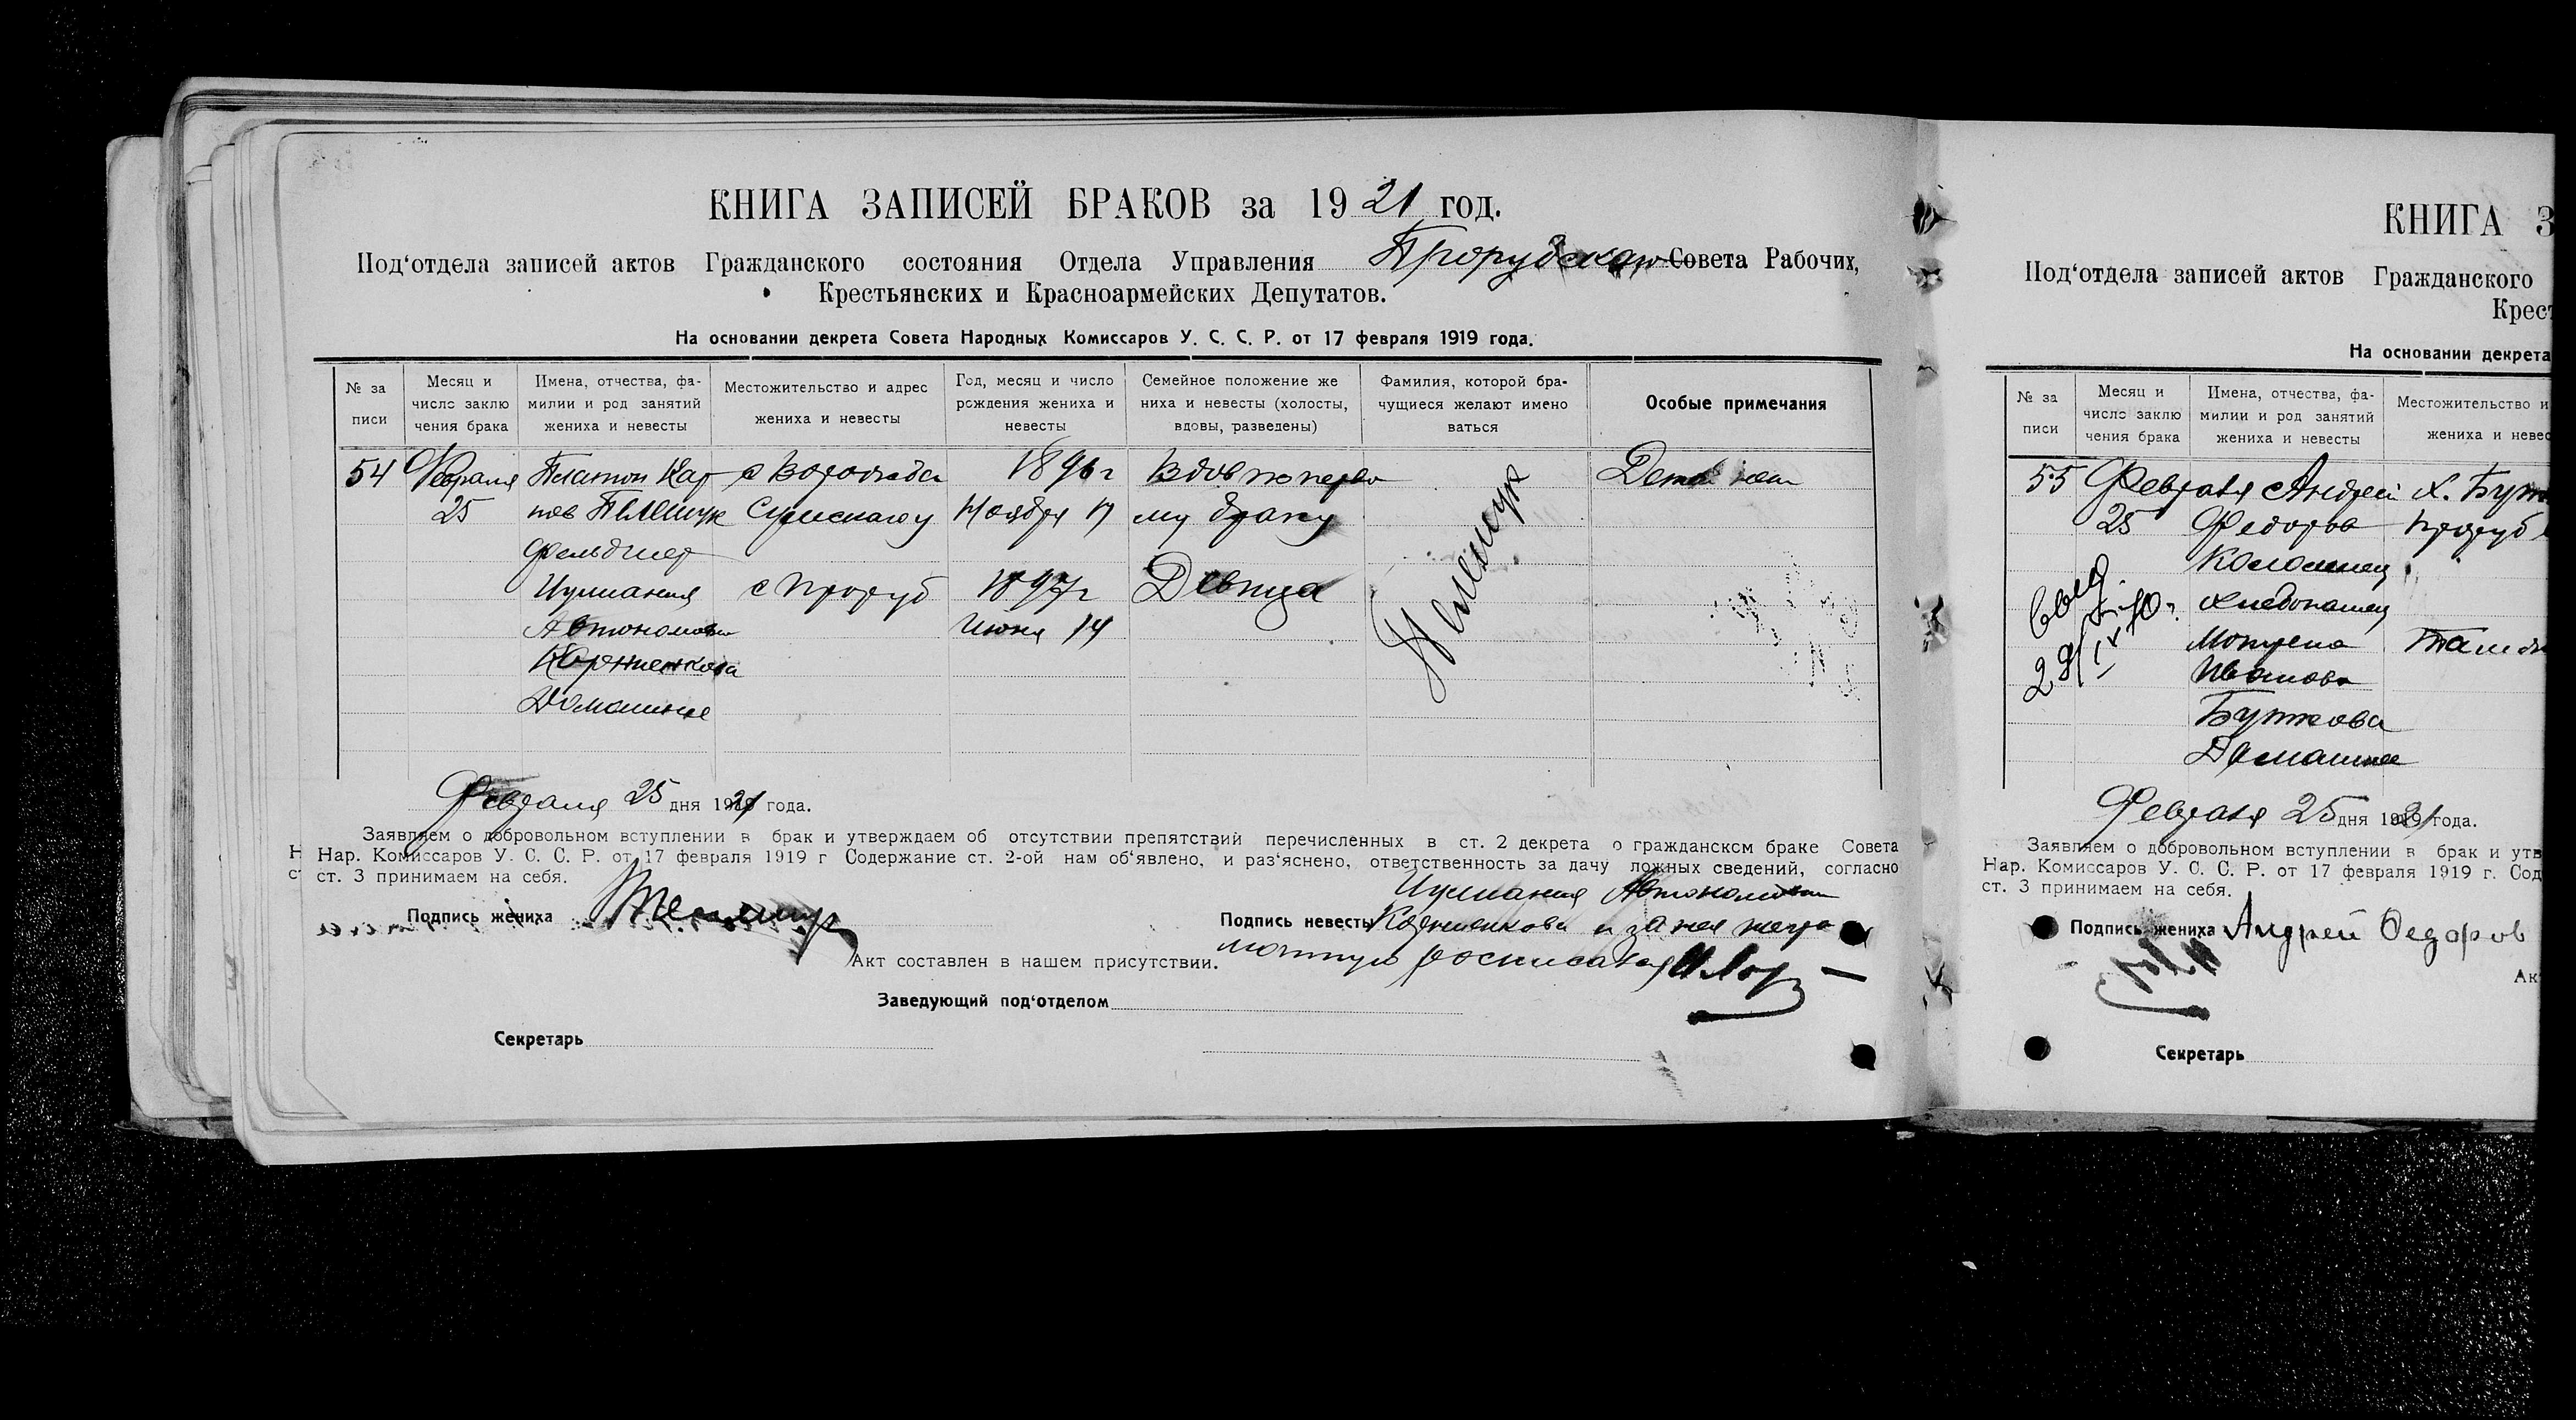 КНИГА ЗАПИСЕЙ БРАКОВ за 1921 год.
Под‘отдела записей актов Гражданского состояния Отдела Управления Прорубскаго Совета Рабочих,
Крестьянских и Красноармейских Депутатов.
На основании декрета Совета Народных Комиссаров У. С. С. Р. от 17 февраля 1919 года.
№ за писи
Месяц и число заклю чения брака
Имена, отчества, фа- милии и род занятий жениха и невесты
Местожительство и адрес жениха и невесты
Год, месяц и число рождения жениха и невесты
Семейное положение же ниха и невесты (холосты, вдовы, разведены)
Фамилия, которой бра- чущиеся желают имено ваться
Особые примечания
54 Февраля Платон Кар с Ворожба 1896 г Вдов по перво
25 пов Пелешук Сумскаго у Ноября 17 му браку
фельдшер
с Проруб 1897 г Девица
Автономова Июня 14
Коржменкова
Домашнее
Пелешук
Детей нет
Февраля 25 дня 1921 года.
Заявляем о добровольном вступлении в брак и утверждаем об отсутствии препятствий перечисленных в ст. 2 декрета о гражданском браке Совета
Нар. Комиссаров У. С. С. Р. от 17 февраля 1919 г Содержание ст. 2-ой нам об‘явлено, и раз‘яснено, ответственность за дачу ложных сведений, согласно
ст. 3 принимаем на себя.
Подпись жениха Пелешук
Подпись невесты Автономовна
и за нея негра
мотную росписался
Акт составлен в нашем присутствии.
Заведующий под‘отделом
Секретарь
КНИГА З
Под‘отдела записей актов Гражданского
Крест
На основании декрета
№ за писи
Месяц и число заклю чения брака
Имена, отчества, фа- милии и род занятий жениха и невесты
Местожительство и жениха и невес
55 Февраля Андрей х. Бут
25 Федоров Проруб
Коломиец
Хлебопашец
Мотрена
Иванова
Буткова
Домашнее
28/IV
Февраля 25 дня 1921 года.
Заявляем о добровольном вступлении в брак и утв
Нар. Комиссаров У. С. С. Р. от 17 февраля 1919 г. Сод
ст. 3 принимаем на себя.
Подпись жениха Андрей Федоров
Ак
Секретарь